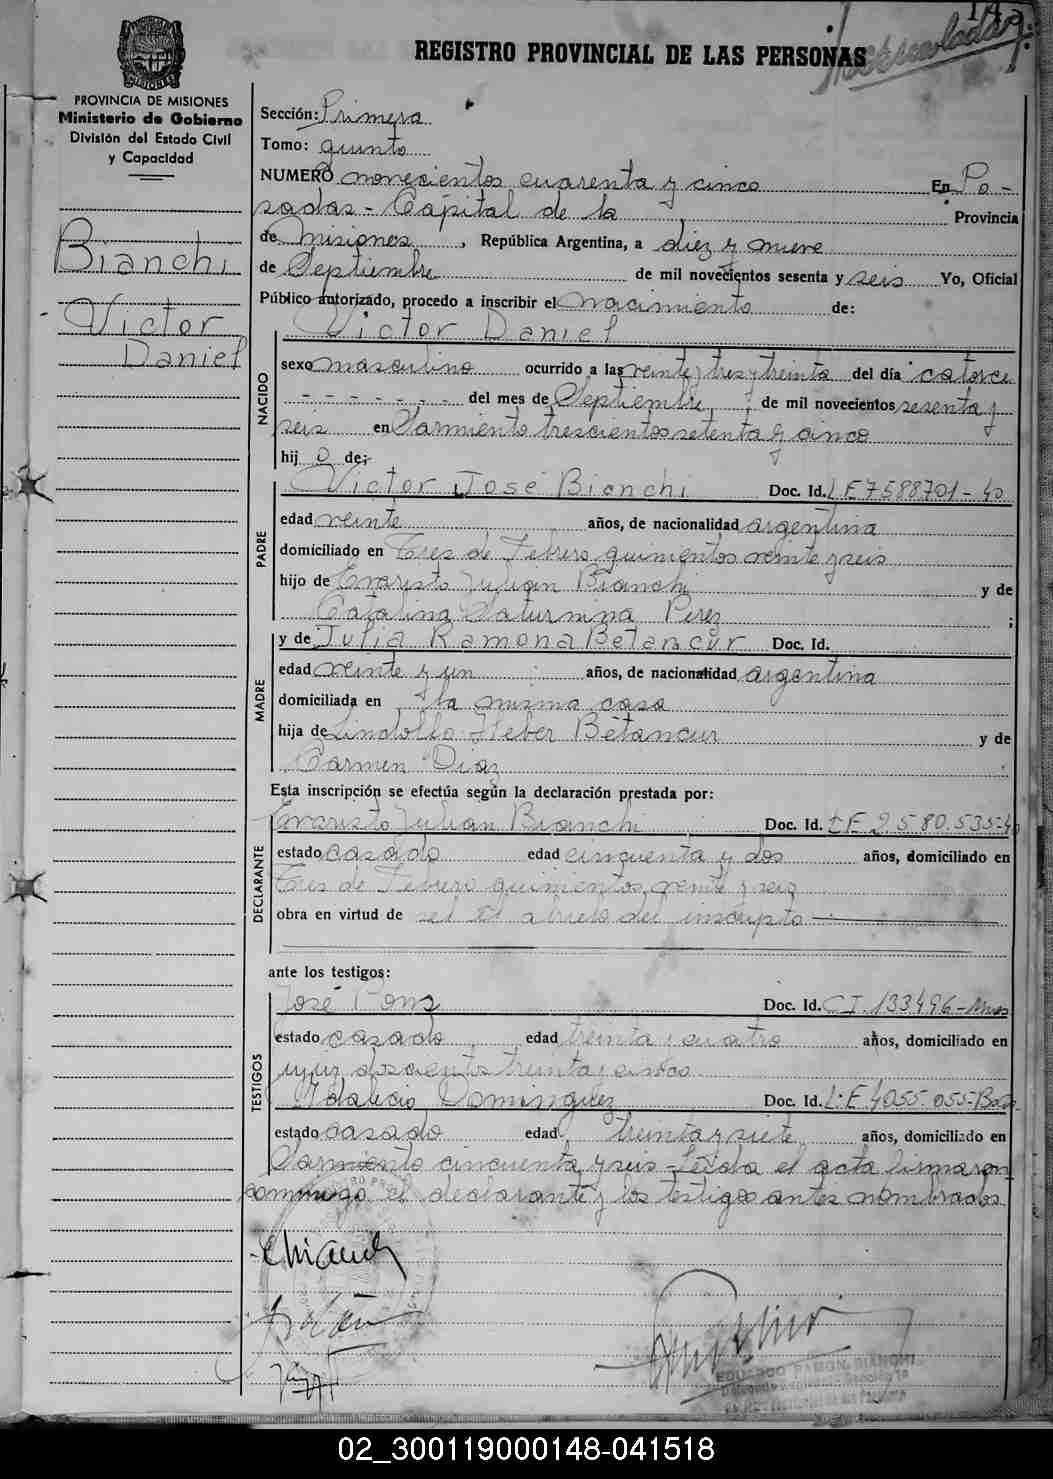 REGISTRO PROVINCIAL DE LAS PERSONAS
PROVINCIA DE MISIONES
Ministerio de Gobierno
División del Estado Civil
y Capacidad
Bianchi
Victor
Daniel
Sección: Primera
Tomo: quinto
NUMERO novecientos cuarenta y cinco En Po-
sadas - Capital de la Provincia
de Misiones, República Argentina, a diez y nueve
de Septiembre de mil novecientos sesenta y seis Yo, Oficial
Público autorizado, procedo a inscribir el nacimiento de:
NACIDO
Victor Daniel
sexo masculino ocurrido a las veinte y tres y treinta del día catorce
- - - - - - - del mes de Septiembre, de mil novecientos sesenta y
seis en Sarmiento trescientos setenta y cinco
hij o de:
PADRE
Victor José Bianchi Doc. Id. L E 7588701-40
edad veinte años, de nacionalidad argentina
domiciliado en Tres de Febrero quinientos veinte y seis
hijo de Evaristo Julian Bianchi y de
Catalina Saturnina Perez ;
MADRE
y de Julia Ramona Betancur Doc. Id.
edad veinte y un años, de nacionalidad argentina
domiciliada en la misma casa
hija de Lindolfo Heber Betancur y de
Carmen Diaz
Esta inscripción se efectúa según la declaración prestada por:
DECLARANTE
Evaristo Julian Bianchi Doc. Id. L E 2.580.535-40
estado casado edad cincuenta y dos años, domiciliado en
Tres de Febrero quinientos veinte y seis
obra en virtud de ser el abuelo del inscripto
ante los testigos:
TESTIGOS
José Pons Doc. Id. C I. 133496-Mnes
estado casado edad treinta y cuatro años, domiciliado en
doscientos treinta y cinco
Idalecio Dominguez Doc. Id. L.E 4055.055-
estado casado edad treinta y siete años, domiciliado en
Sarmiento cincuenta y seis - Leída el acta firmaron
conmigo el declarante y los testigos antes nombrados.
EDUARDO RAMON BIANCHI
02_300119000148-041518